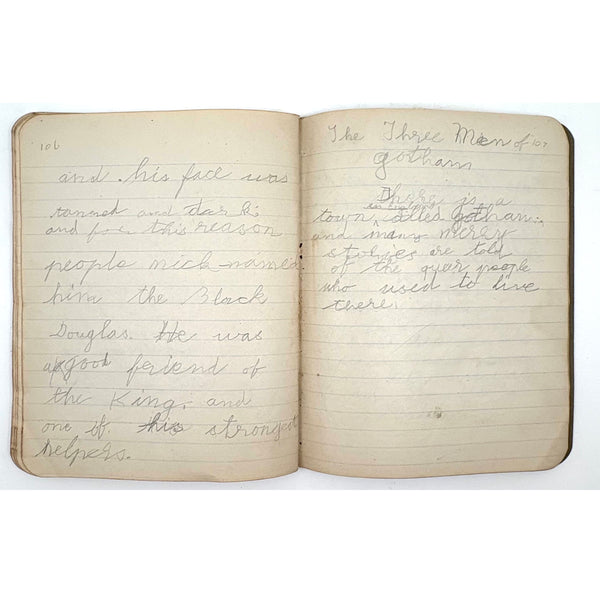 106
and his face was
tanned and dark
and for this reason
people nick-named
him the Black
Douglas. He was
a good feriend of
the King, and
one of his strongest
helpers.
The Three Men of 107
gotham
There is a
town called gotham
and many merry
stories are told
of the queer people
who used to live
there.